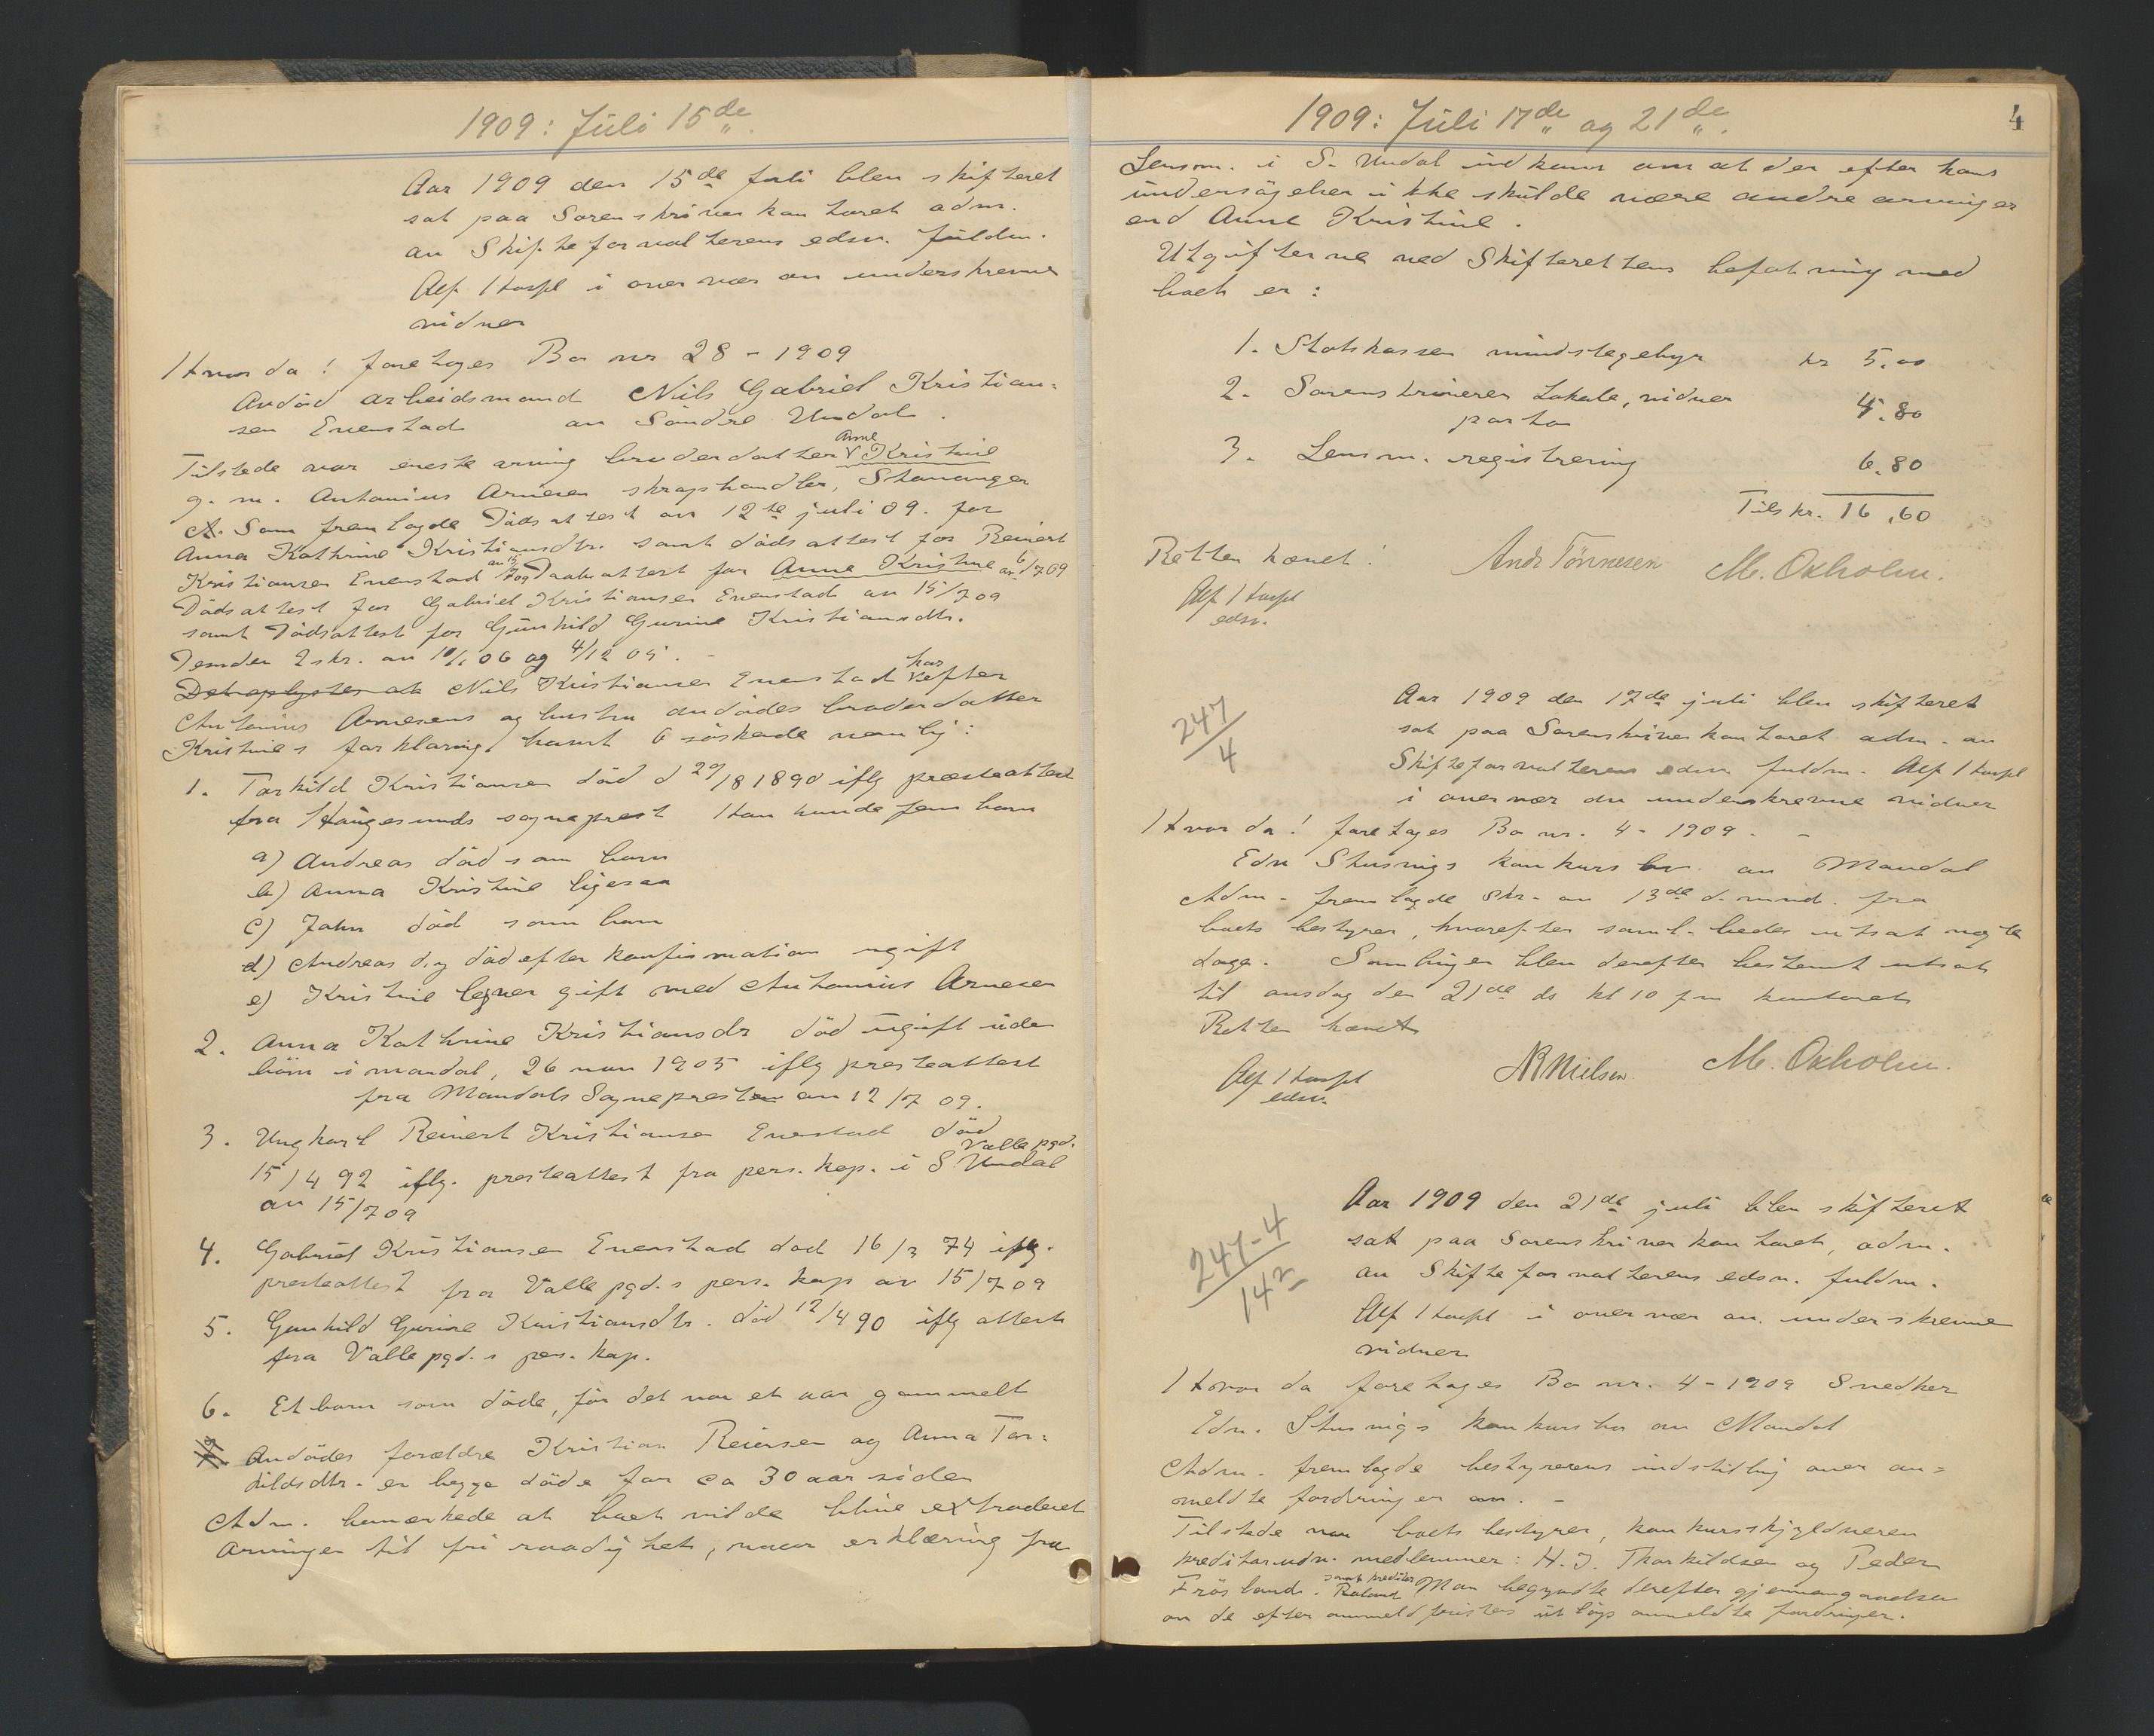 1909: Juli 15de
Aar 1909 den 15de juli blev skifteret
sat paa Sorenskriverkontoret adm.
av Skifteforvalterens edsv. fuldm.
Alf Harpl i overvær av underskrevne
vidner
Hvorda! foretoges Bo nr 28 - 1909
Avdöd arbeidsmand Nils Gabriel Kristian-
sen Evenstad av Söndre Undal.
Tilstede var eneste arving broderdatter Anne Kristine
g. m. Antonius Arnesen skraphandler, Stavanger
Som fremlagde Dödsattest av 12te juli 09. for
Anna Kathrine Kristiansdtr. samt dödsattest for Reinert
Kristiansen Evenstad Daabsattest for Anne Kristine av 6/7 09
Dödsattest for Gabriel Kristiansen Evenstad av 15/7 09
samt Dödsattest for Gunhild Gurine Kristiansdtr.
Desuden 2 skr. av 10/1 06 og 4/12 05. -
Det oplystes at Nils Kristiansen Evenstad har efter
Antonius Arnesens og hustru avdödes broderdatter
Kristines forklaring havt 6 söskende nemlig:
1. Torkild Kristiansen död d 29/8 1890 iflg presteattest
fra Haugesunds sogneprest Han hadde fem barn
a) Andreas död som barn
b) Anna Kristine ligesaa
c) John död som barn
d) Andreas d.y död efter konfirmation ugift
e) Kristine lever gift med Antonius Arnesen
2. Anna Kathrine Kristiansdr död ugift uden
börn i mandal, 26 nov 1905 iflg presteattest
fra Mandals Sogneprest av 12/7 09.
3. Ungkarl Reinert Kristiansen Evenstad död
15/4 92 iflg. presteattest fra pers. kap. i S. Undal Valle pgd.
av 15/7 09
4. Gabriel Kristiansen Evenstad död 16/3 74 iflg.
presteattest fra Valle pgd.s pers. kap av 15/7 09
5. Gunhild Gurine Kristiansdtr. död 12/4 90 iflg attest
fra Valle pgd.s pers. kap.
6. Et barn som döde, för det var et aar gammelt
Avdödes forældre Kristian Reiersen og Anna Tor-
kildsdtr. er begge döde for ca 30 aar siden
Adm. bemærkede at boet vilde blive extraderet
arvingen til fri raadighet, naar erklæring fra
1909: Juli 17de og 21de.
4
Lensm. i S. Undal indkom om at der efter hans
undersögelser ikke skulde være andre arvinger
end Anne Kristine.
Utgifterne ved Skifterettens befatning med
boet er:
1. Statskassen mindstegebyr kr 5.00
2. Sorenskriveren Lokale, vidner
porto 4.80
3. Lensm. registrering 6.80
Tils kr. 16.60
Retten hævet!
Andr Tönnesen M. Oxholm.
Alf Harpl
edsv.
247/4
Aar 1909 den 17de juli blev skifteret
sat paa Sorenskriverkontoret adm. av
Skifteforvalterens edsv. fuldm. Alf Harpl
i overvær av underskrevne vidner
Hvorda! foretoges Bo nr. 4 - 1909. -
Edv Stusvigs konkursbo av Mandal
Adm. fremlagde skr. av 13de d. mnd. fra
boets bestyrer, hvorefter saml. bedes utsat nogle
dage. Samlingen blev derefter bestemt utsat
til onsdag den 21de ds kl 10 fm kontoret
Retten hævet
Alf Harpl
edsv.
NB Nielsen. M. Oxholm.
247-4/142
Aar 1909 den 21de juli blev skifteret
sat paa Sorenskriverkontoret, adm.
av Skifteforvalterens edsv. fuldm.
Alf Harpl i overvær av underskrevne
vidner
Hvorda foretoges Bo nr. 4-1909 Snedker
Edv. Stusvigs konkursbo av Mandal
Adm. fremlagde bestyrerens indstilling over an-
meldte fordringer
Tilstede var boets bestyrer, konkursskyldneren
kreditorudv. medlemmer: H. J. Thorkildsen og Peder
Frösland. samt kreditor Man begyndte derefter gjennemgaaelsen
av de efter anmeldfristens utlöp anmeldte fordringer.